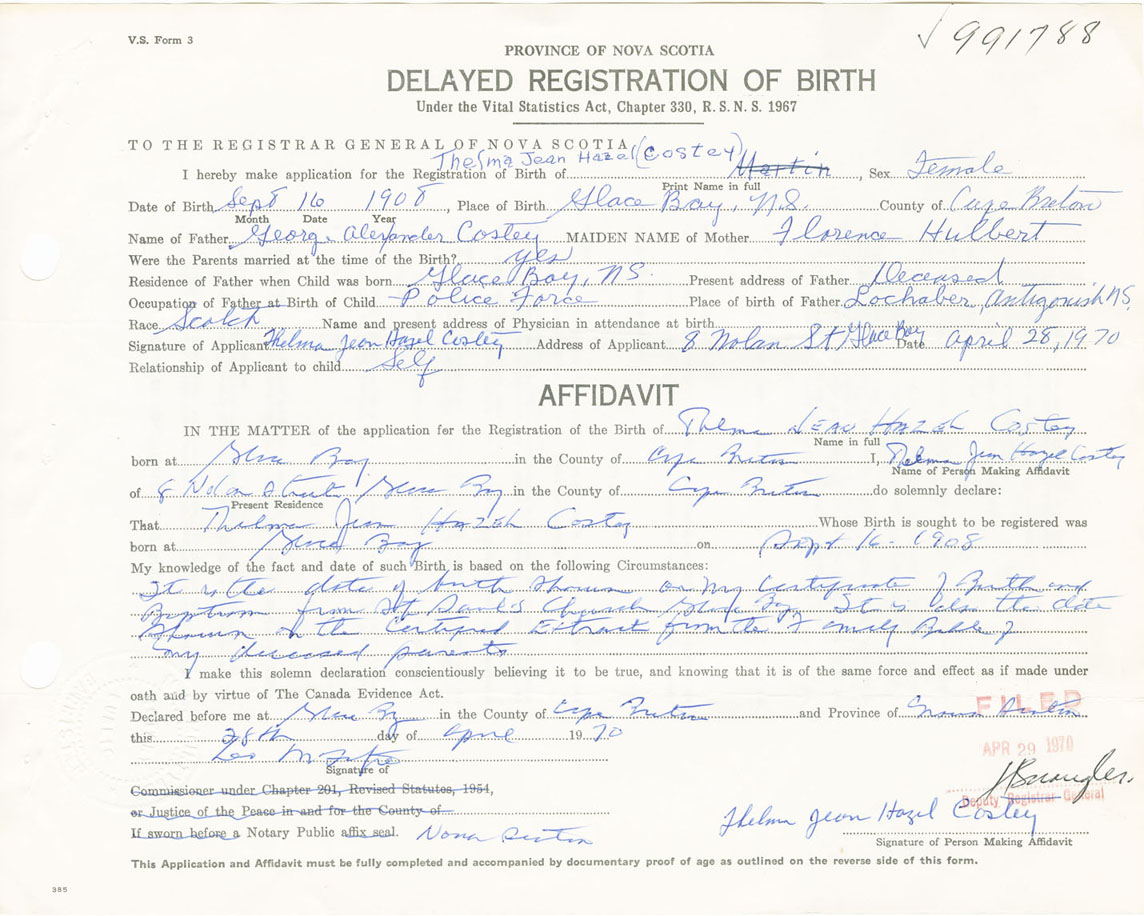 V.S. Form 3
√991788
PROVINCE OF NOVA SCOTIA
DELAYED REGISTRATION OF BIRTH
Under the Vital Statistics Act, Chapter 330, R.S.N.S. 1967
TO THE REGISTRAR GENERAL OF NOVA SCOTIA
Thelma Jean Hazel (Costey)
I hereby make application for the Registration of Birth of Martin, Sex Female
Print Name in full
Date of Birth Sept 16 1908, Place of Birth Glace Bay, N.S. County of Cape Breton
Month Date Year
Name of Father George Alexander Costey MAIDEN NAME of Mother Florence Hulbert
Were the Parents married at the time of the Birth? yes
Residence of Father when Child was born Glace Bay, NS. Present address of Father Deceased
Occupation of Father at Birth of Child Police Force Place of birth of Father Lochaber, Antigonish NS.
Race Scotch Name and present address of Physician in attendance at birth
Signature of Applicant Thelma Jean Hazel Costey Address of Applicant 8 Nolan St Glace Bay Date April 28, 1970
Relationship of Applicant to child Self
AFFIDAVIT
IN THE MATTER of the application for the Registration of the Birth of Thelma Jean Hazel Costey
Name in full
born at Glace Bay in the County of Cape Breton I, Thelma Jean Hazel Costey
Name of Person Making Affidavit
of 8 Nolan Street, Glace Bay in the County of Cape Breton do solemnly declare:
Present Residence
That Thelma Jean Hazel Costey Whose Birth is sought to be registered was
born at Glace Bay on Sept 16 - 1908
My knowledge of the fact and date of such Birth, is based on the following Circumstances:
It is the date of birth shown on my Certificate of Birth and
Baptism from St Paul's Church Glace Bay. It is also the date
shown on the Certified Extract from the Family Bible of
my deceased parents
I make this solemn declaration conscientiously believing it to be true, and knowing that it is of the same force and effect as if made under
oath and by virtue of The Canada Evidence Act.
Declared before me at Glace Bay in the County of Cape Breton and Province of Nova Scotia
FILED
this 28th day of April 1970
APR 29 1970
Leo
Signature of
Commissioner under Chapter 201, Revised Statutes, 1954,
or Justice of the Peace in and for the County of
Deputy Registrar General
If sworn before a Notary Public affix seal. Nova Scotia
Thelma Jean Hazel Costey
Signature of Person Making Affidavit
This Application and Affidavit must be fully completed and accompanied by documentary proof of age as outlined on the reverse side of this form.
385